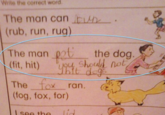 Write the correct word
The man can run.
(rub, run, rug)
The man pet the dog.
(fit, hit) you should not
hit dogs
The fox ran.
(fog, fox, for)
I see the